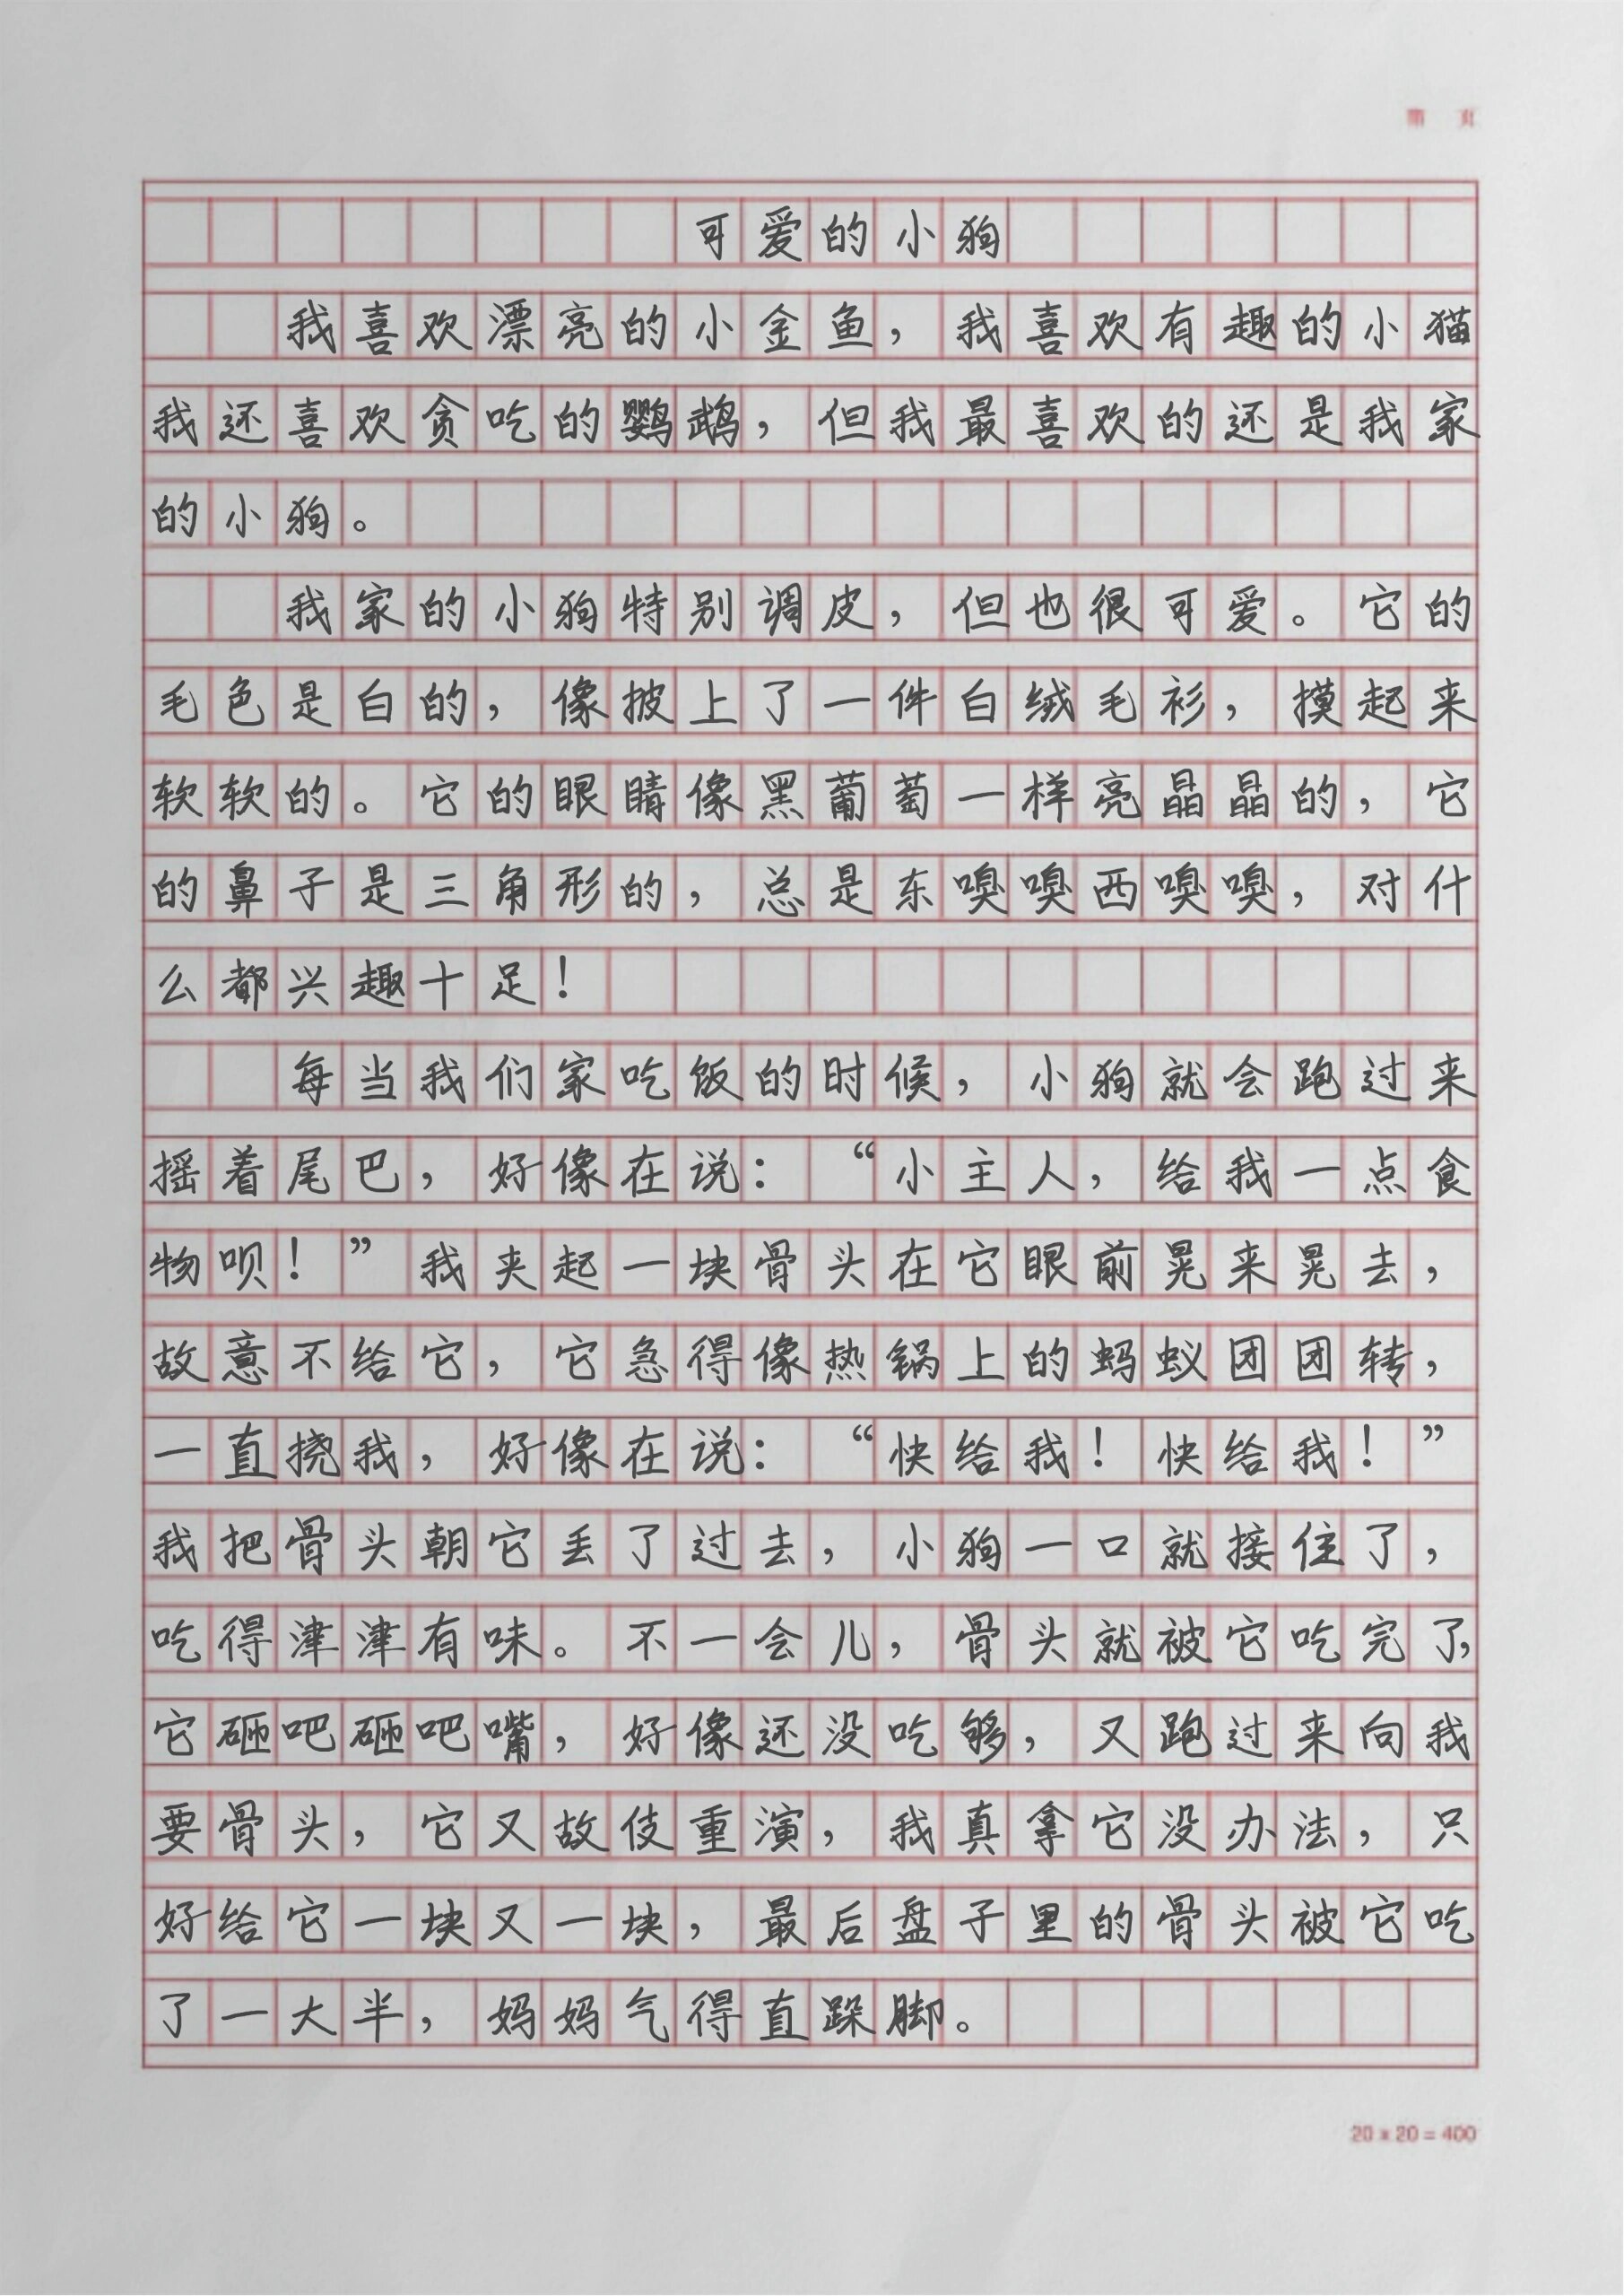 第 页
可爱的小狗
我喜欢漂亮的小金鱼，我喜欢有趣的小猫
我还喜欢贪吃的鹦鹉，但我最喜欢的还是我家
的小狗。
我家的小狗特别调皮，但也很可爱。它的
毛色是白的，像披上了一件白绒毛衫，摸起来
软软的。它的眼睛像黑葡萄一样亮晶晶的，它
的鼻子是三角形的，总是东嗅嗅西嗅嗅，对什
么都兴趣十足！
每当我们家吃饭的时候，小狗就会跑过来
摇着尾巴，好像在说：“小主人，给我一点食
物呗！”我夹起一块骨头在它眼前晃来晃去，
故意不给它，它急得像热锅上的蚂蚁团团转，
一直挠我，好像在说：“快给我！快给我！”
我把骨头朝它丢了过去，小狗一口就接住了，
吃得津津有味。不一会儿，骨头就被它吃完了，
它砸吧砸吧嘴，好像还没吃够，又跑过来向我
要骨头，它又故伎重演，我真拿它没办法，只
好给它一块又一块，最后盘子里的骨头被它吃
了一大半，妈妈气得直跺脚。
20 x 20 = 400